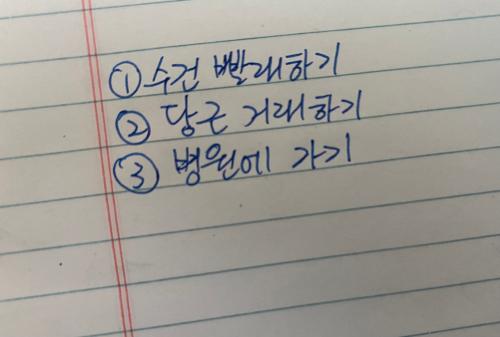 ① 수건 빨래하기
② 당근 거래하기
③ 병원에 가기